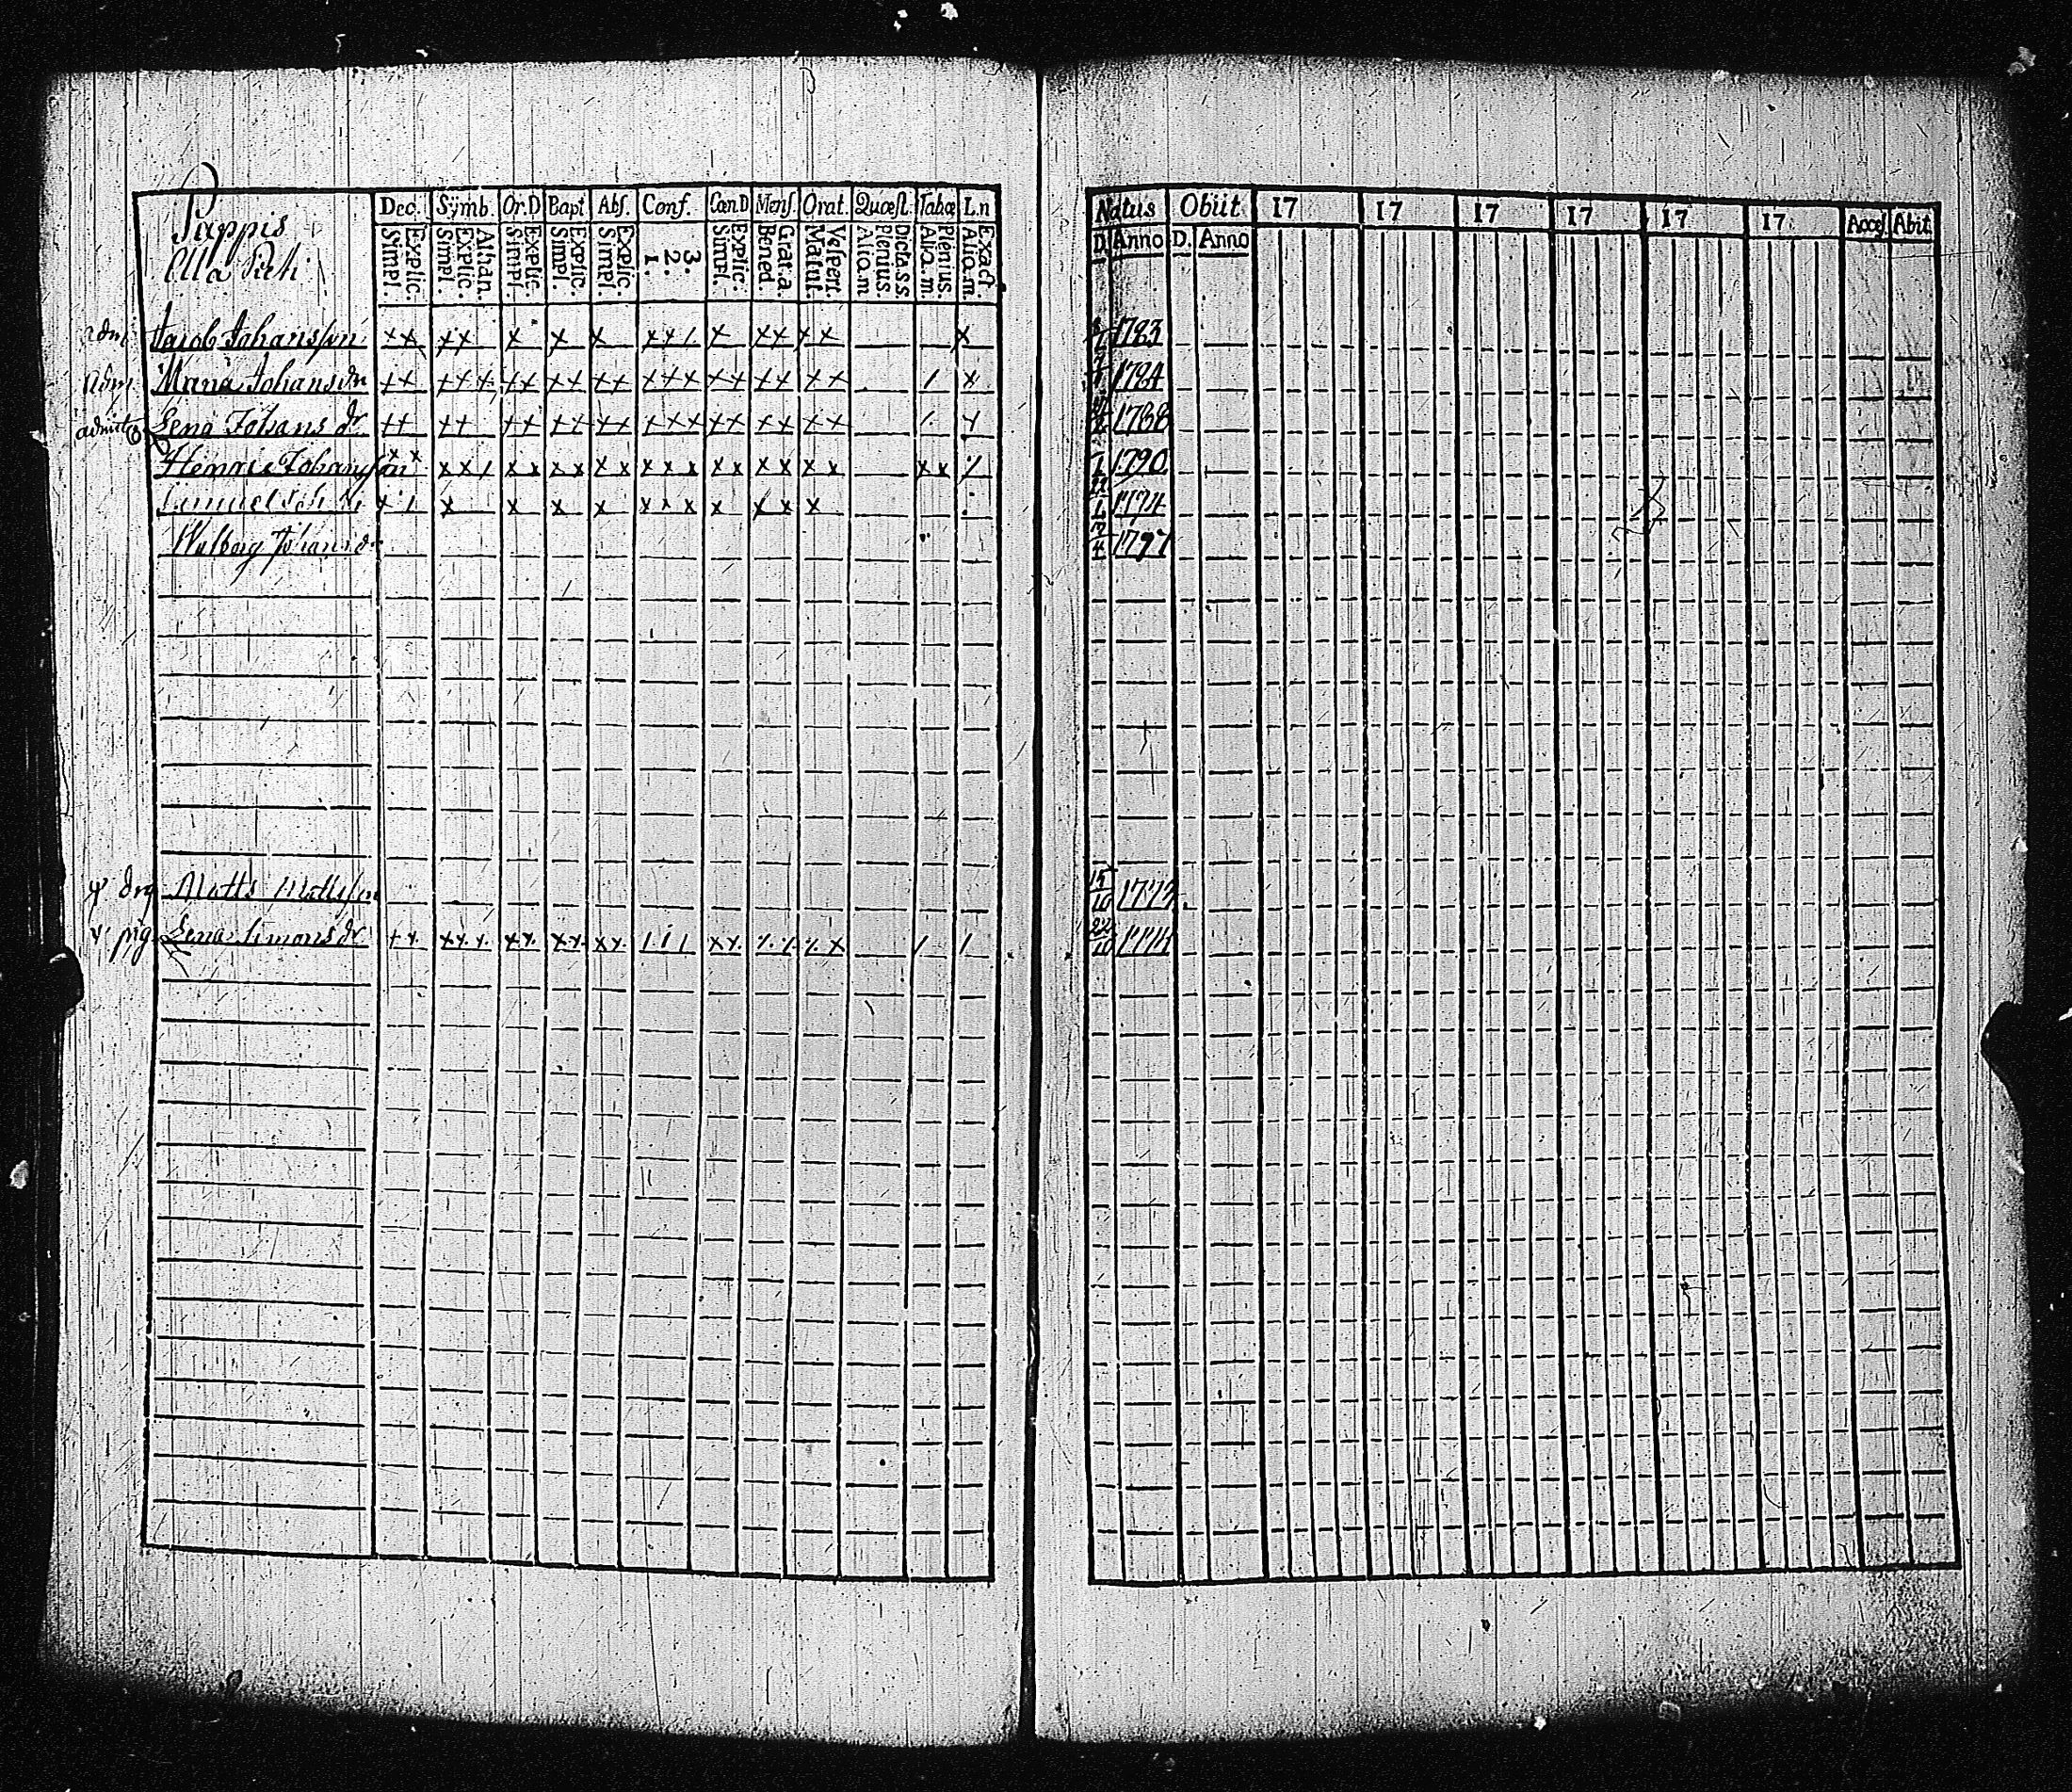 Pappis
Dec. Symb. Or.D Bapt Abs. Conf. CœnD Mens. Orat. Quæst. Tabœ L.n
Simpl. Explic. Simpl. Explic. Athan. Simpl. Explic. Simpl. Explic. Simpl. Explic. 1. 2. 3. Simpl. Explic. Bened. Grat.a. Matut. Vespert. Alio.m. Plenius. Dicta.s.s. Alia.m. Plenius. Alio.m. Exact.
Natus Obiit 17 17 17 17 17 17 Acces. Abit
D. Anno D. Anno
adm Jacob Johansson 1783
adm Maria Johansdr 1784
admit Lena Johans dr 1788
Henric Johansson 1790
Walborg Johansdr 3/4 1797
drg Matts Mattsson 15/10 1773
pig Lena Simons dr 22/10